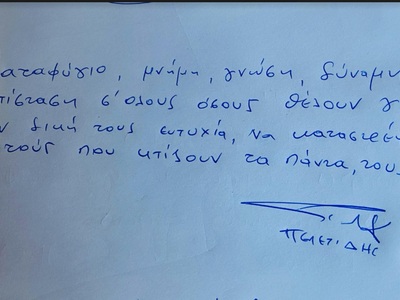 αταφύγιο, μνήμη, γνώση, δύναμη
τίσταση σ' όλους όσους θέλουν γ
ν δική τους ευτυχία, να καταστρέ
τούς που κτίζουν τα πάντα, τους